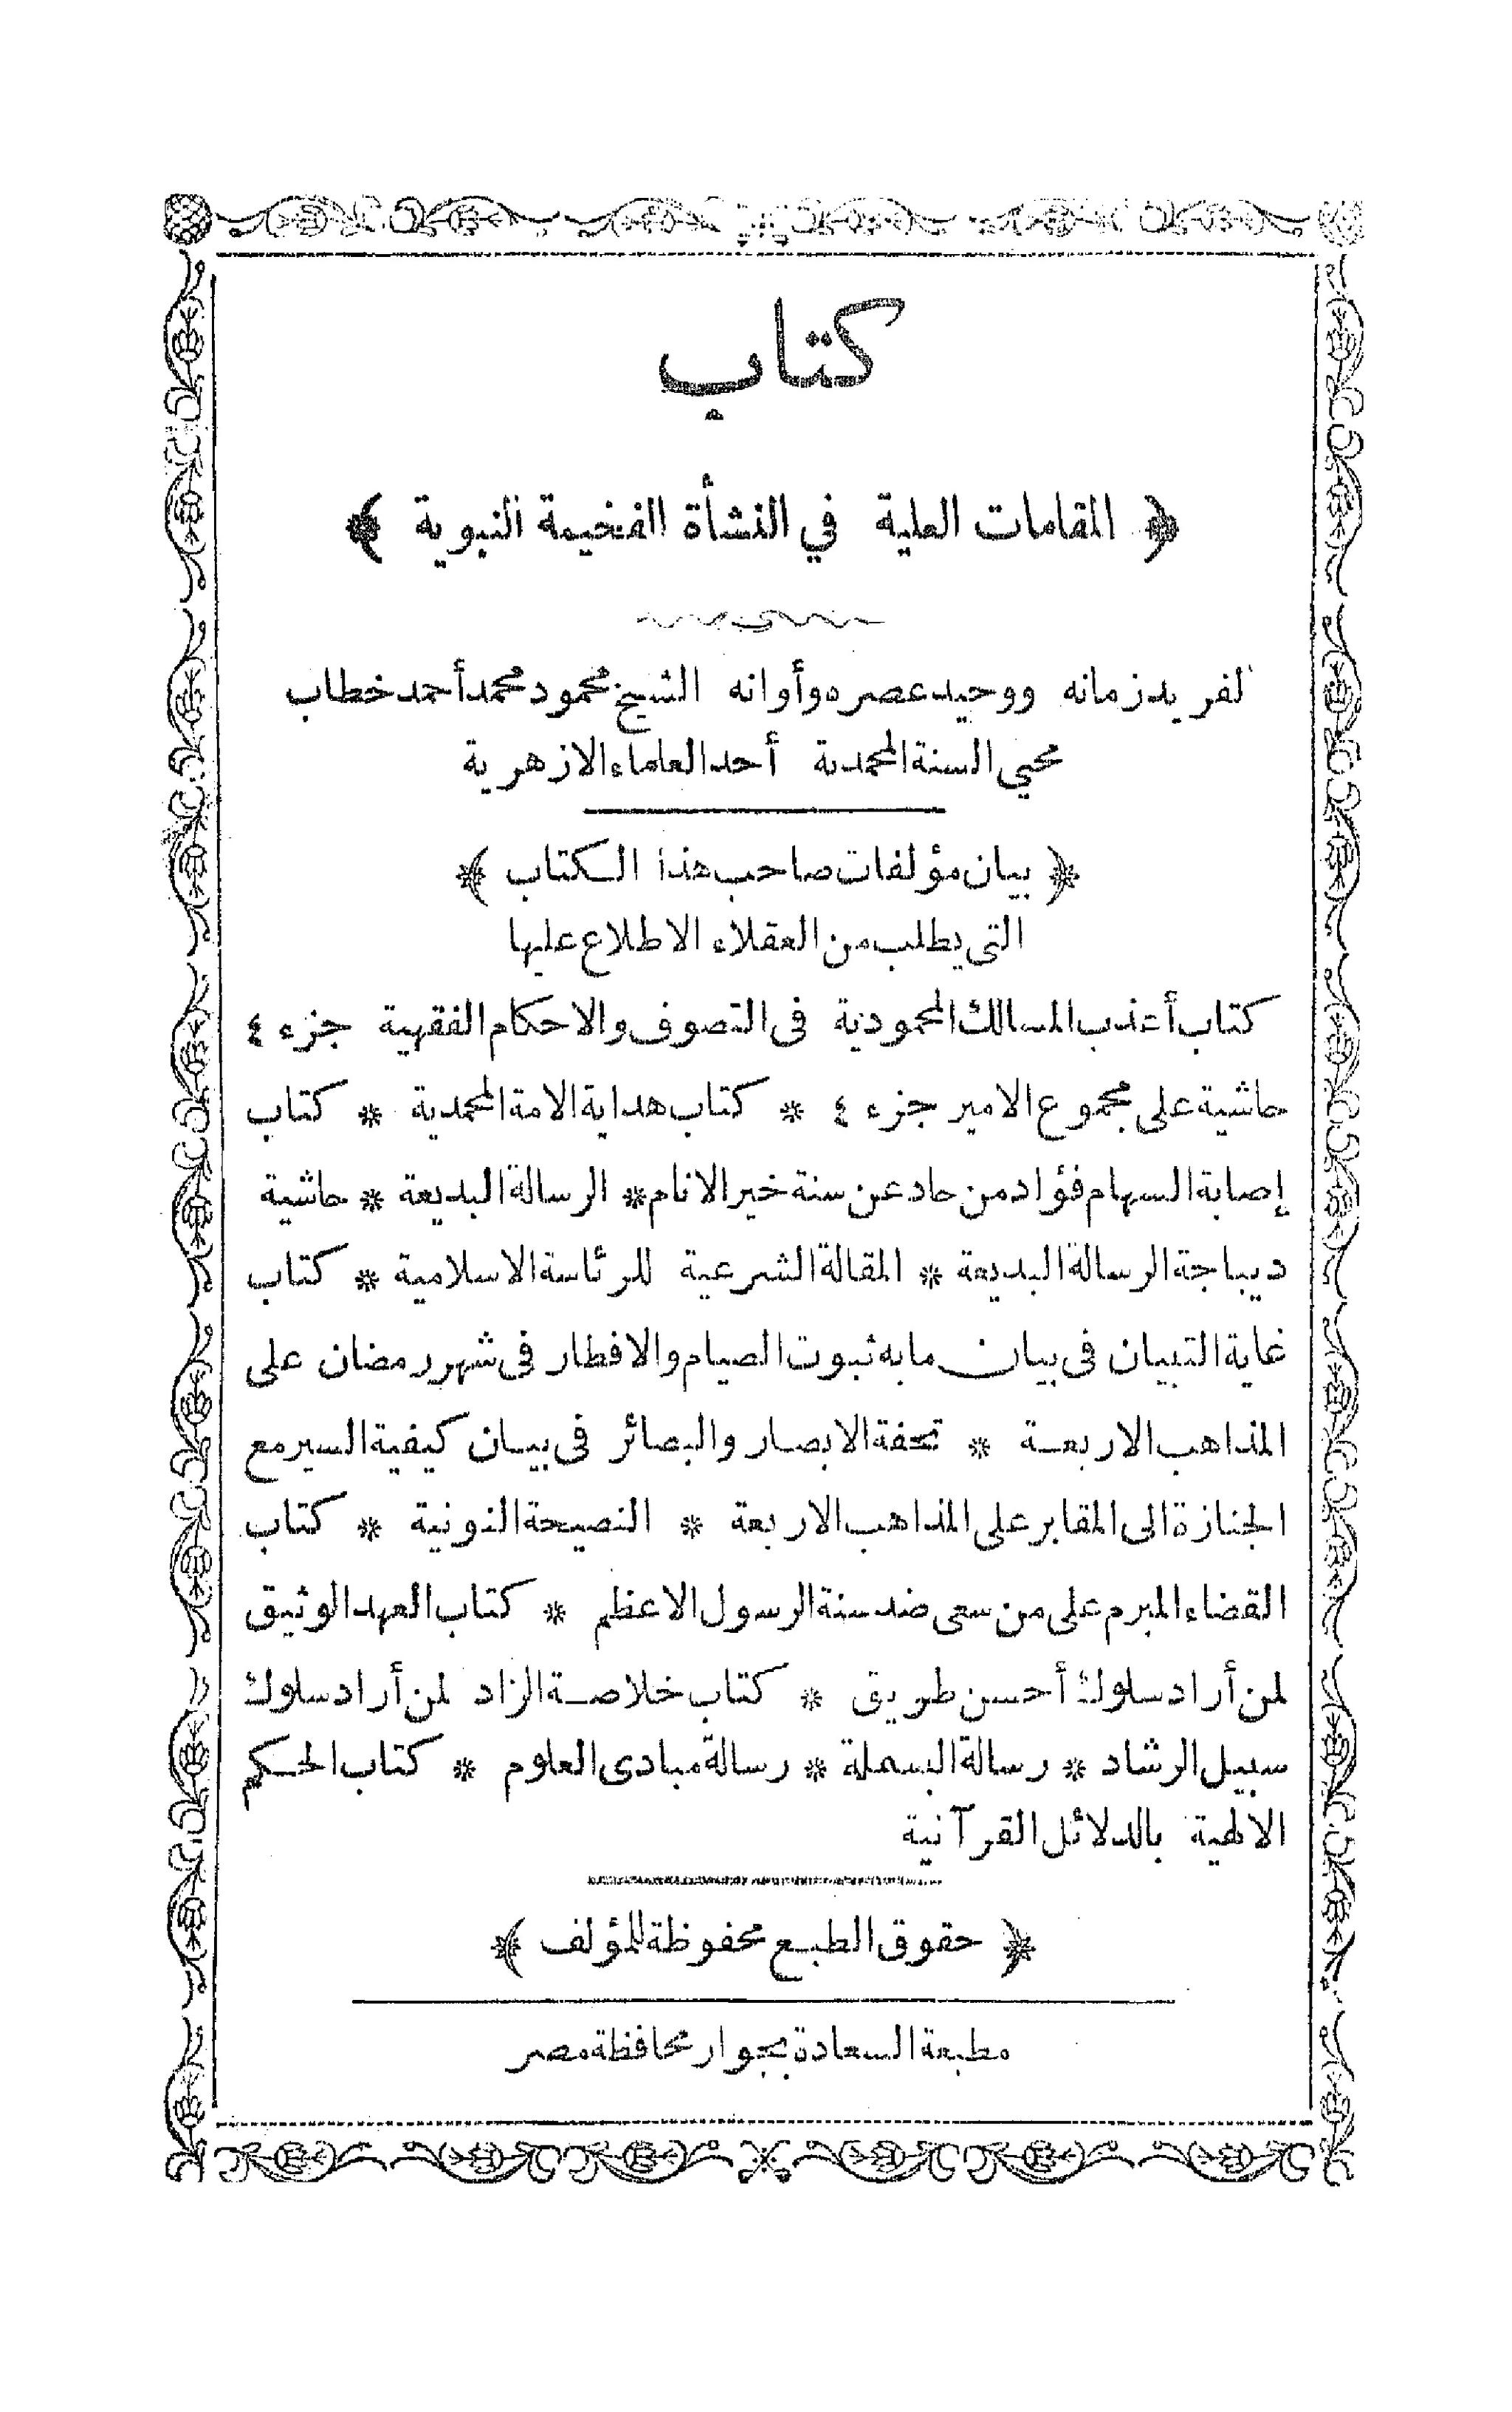 كتاب
﴿ المقامات العلية في النشأة الفخيمة النبوية ﴾
لفريد زمانه ووحيد عصره وأوانه الشيخ محمود محمد أحمد خطاب
محيي السنة المحمدية أحد العلماء الازهرية
﴿ بيان مؤلفات صاحب هذا الكتاب ﴾
التى يطلب من العقلاء الاطلاع عليها
كتاب أعذب المسالك المحمودية فى التصوف والاحكام الفقهية جزء ٤
حاشية على مجموع الامير جزء ٤ * كتاب هداية الامة المحمدية * كتاب
إصابة السهام فؤاد من حاد عن سنة خير الانام * الرسالة البديعة * حاشية
ديباجة الرسالة البديعة * المقالة الشرعية للرئاسة الاسلامية * كتاب
غاية التبيان فى بيان ما به ثبوت الصيام والافطار فى شهر رمضان على
المذاهب الاربعة * تحفة الابصار والبصائر فى بيان كيفية السير مع
الجنازة الى المقابر على المذاهب الاربعة * النصيحة النونية * كتاب
القضاء المبرم على من سعى ضد سنة الرسول الاعظم * كتاب العهد الوثيق
لمن أراد سلوك أحسن طريق * كتاب خلاصة الزاد لمن أراد سلوك
سبيل الرشاد * رسالة البسملة * رسالة مبادى العلوم * كتاب الحكم
الالهية بالدلائل القرآنية
﴿ حقوق الطبع محفوظة للمؤلف ﴾
مطبعة السعادة بجوار محافظة مصر